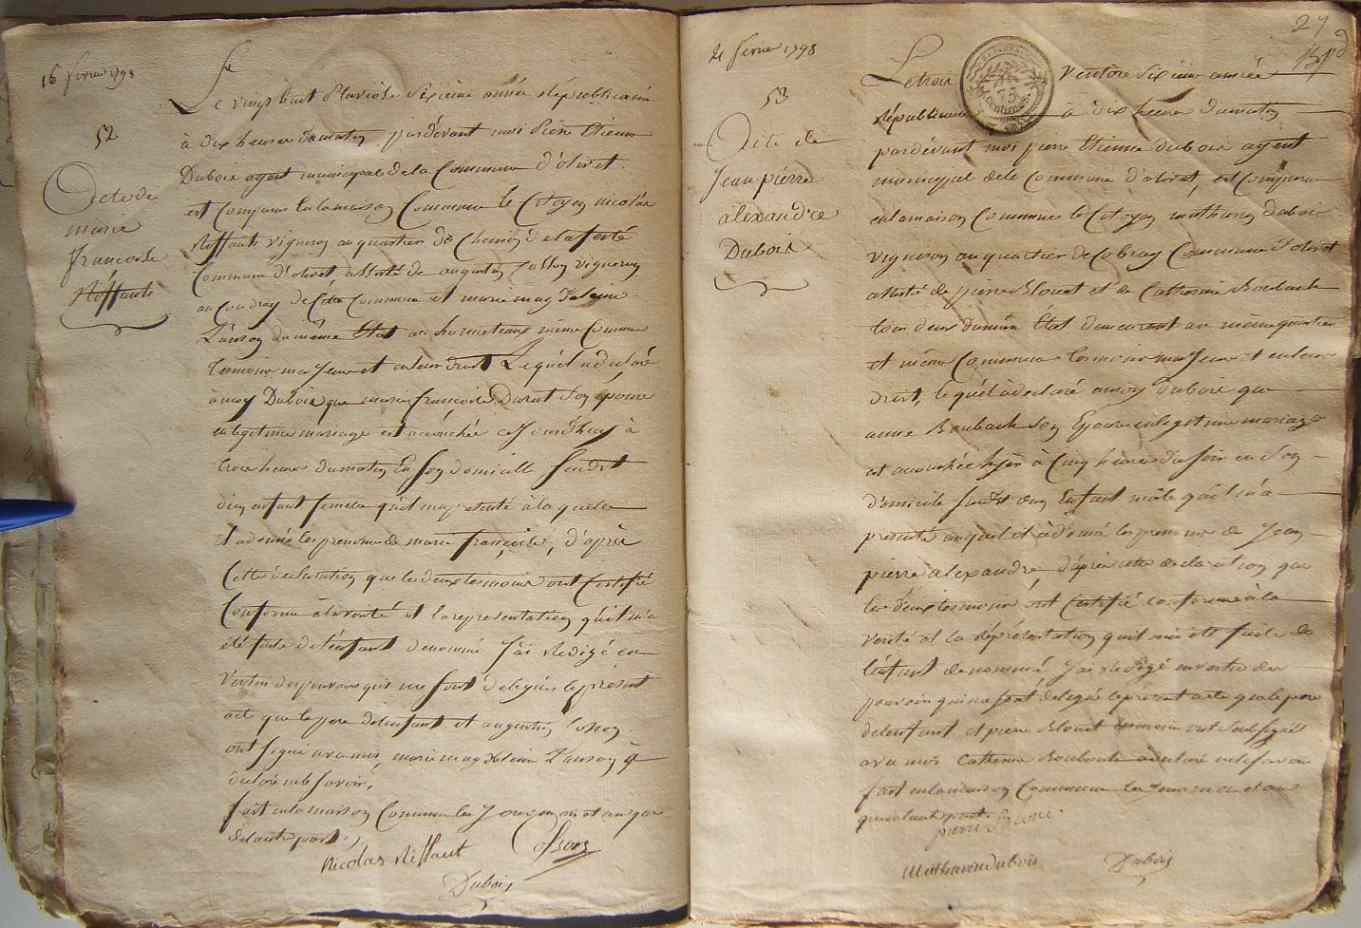 16 fevrier 1798
52
Acte de
marie
francoise
Riffault
Le vingt huit Pluviose Sixieme année Républicaine
à dix heures du matin, pardevant moi Pierre Etienne
Dubois agent municipal de la Commune d'olivet
est Comparu en la maison Commune le Citoyen nicolas
Riffault vigneron au quartier de
Commune d'olivet assisté de augustin Cosson vigneron
au Coudray de Cette Commune et marie magdelaine
Lanson du même Etat au même Commune
temoins majeurs et en leur droit Lequel a déclaré
à moy Dubois que marie françoise Son épouse
en légitime mariage est accouchée cejourd'huy à
trois heures du matin En Son domicille Sudit
d'un enfant femelle qu'il m'a présenté à laquelle
Il a donné les prenoms de marie françoise, d'après
Cette déclaration que les deux temoins ont Certifié
Conforme à la verité et la représentation qu'il m'a
été faite de l'enfant denommé J'ai Redigé en
Vertu des pouvoirs qui me Sont délégués le présent
acte que le pere de l'enfant et augustin Cosson
ont Signé avec moi, marie magdelaine Lanson a
déclaré ne le Savoir,
fait en la maison Commune les Jour mois et an que
de l'autre part.
Nicolas Riffault Cosson
Dubois
21 fevrier 1798
53
Acte de
Jean pierre
alexandre
Dubois
27
Le trois Ventose Sixieme année
Républicaine à dix heures du matin
pardevant moi pierre Etienne dubois agent
municipal de la Commune d'olivet, est Comparu
en la maison Commune le Citoyen mathurin dubois
vigneron au quartier de Commune d'olivet
assisté de pierre Blouet et de Catherine Rouback
tous deux du même Etat demeurant au même quartier
et même Commune temoins majeurs et en leur
droit, lequel a déclaré a moy dubois que
anne Rouback Son Epouse en légitime mariage
est accouchée hyer à Cinq heures du soir en Son
domicile Sudit d'un Enfant mâle qu'il m'a
présenté auquel il a donné les prenoms de Jean
pierre alexandre, d'après cette déclaration que
les deux temoins ont Certifié conforme à la
verité et la représentation qu'il m'a été faite de
l'enfant denommé J'ai Redigé en vertu des
pouvoirs qui me sont délégués le présent acte que le pere
de l'enfant et pierre Blouet temoin ont Soussigné
avec moi Catherine Rouback a declaré ne le savoir
fait en la maison Commune les Jour mois et an
que d'autre part
Mathurin dubois Dubois